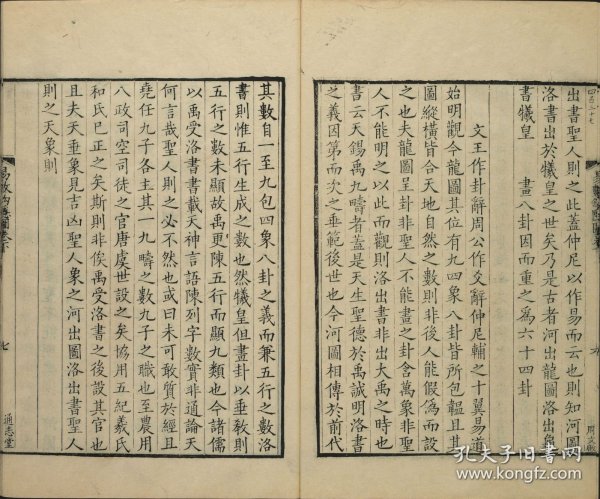 出書聖人則之此蓋仲尼以作易而云也則知河圖
洛書出於犧皇之世矣乃是古者河出龍圖洛出龜
書犧皇 畫八卦因而重之為六十四卦
文王作卦辭周公作爻辭仲尼輔之十翼易道
始明觀今龍圖其位有九四象八卦皆所包韞且其
圖縱橫皆合天地自然之數則非後人能假偽而設
之也夫龍圖呈卦非聖人不能畫之卦含萬象非聖
人不能明之以此而觀則洛出書非出大禹之時也
書云天錫禹九疇者蓋是天生聖德於禹誠明洛書
之義因第而次之垂範後世也今河圖相傳於前代
其數自一至九包四象八卦之義而兼五行之數洛
書則惟五行生成之數也然犧皇但畫卦以垂教則
五行之數未顯故禹更陳五行而顯九類也今諸儒
以禹受洛書書載天神言語陳列字數實非通論天
何言哉聖人則之必不然也或曰未可敢質於經且
堯任九子各主其一九疇之數九子之職也至農用
八政司空司徒之官唐虞世設之矣協用五紀羲氏
和氏已正之矣斯則非俟禹受洛書之後設其官也
且夫天垂象見吉凶聖人象之河出圖洛出書聖人
則之天象則
七
通志堂
孔夫子旧书网
www.kongfz.com